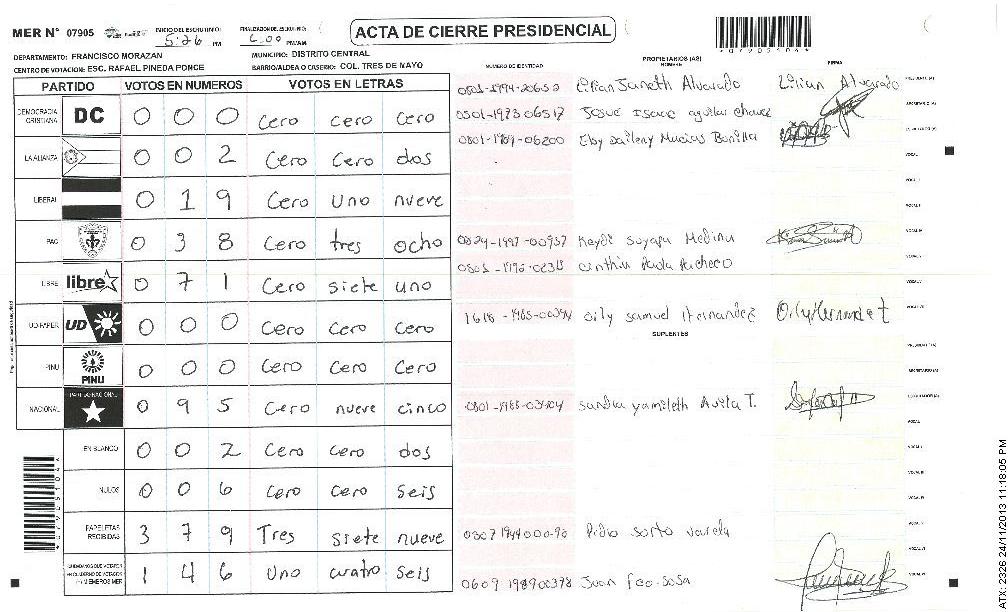 MER Nº 07905 INICIO DEL ESCRUTINIO: 5:26 PM FINALIZACION DE ESCRUTINIO: 6:00 PM/AM ACTA DE CIERRE PRESIDENCIAL
DEPARTAMENTO: FRANCISCO MORAZAN MUNICIPIO: DISTRITO CENTRAL
CENTRO DE VOTACION: ESC. RAFAEL PINEDA PONCE BARRIO/ALDEA O CASERIO: COL. TRES DE MAYO
NUMERO DE IDENTIDAD PROPIETARIOS (AS) NOMBRE FIRMA
PARTIDO VOTOS EN NUMEROS VOTOS EN LETRAS
DEMOCRACIA CRISTIANA DC 0 0 0 cero cero cero
LA ALIANZA 0 0 2 Cero Cero dos
LIBERAL 0 1 9 Cero Uno nueve
PAC 0 3 8 Cero tres ocho
LIBRE libre 0 7 1 Cero siete uno
UD-FAPER UD 0 0 0 Cero Cero Cero
PINU PINU 0 0 0 Cero Cero Cero
NACIONAL PARTIDO NACIONAL 0 9 5 Cero nueve cinco
EN BLANCO 0 0 2 Cero Cero dos
NULOS 0 0 6 Cero Cero seis
PAPELETAS RECIBIDAS 3 7 9 Tres siete nueve
1 4 6 Uno cuatro seis
Lilian Janeth Alvarado Lilian Alvarado
0801-1973 06517 Josue Isaac aguilar chavez
0801-1989-06200 Elsy Macias Bonilla
0824-1997-00957 Keydi Suyapa Medina
Cinthia Paola Pacheco
Oily Samuel Hernandez Oily Hernandez
SUPLENTES
Sandra yamileth Avila T.
sorto varela
0609 198900378 Juan fco-sosa
ATX: 2326 24/11/2013 11:18:05 PM